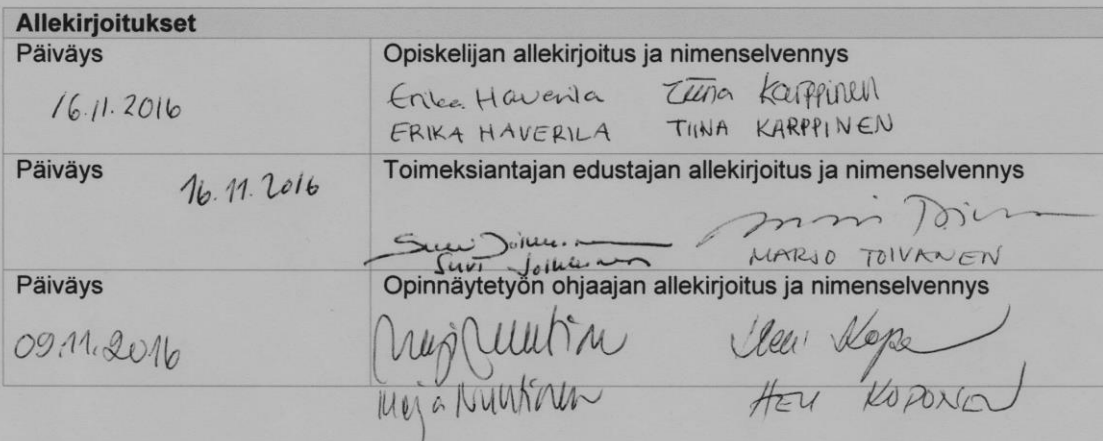 Allekirjoitukset
Päiväys
Opiskelijan allekirjoitus ja nimenselvennys
16.11.2016
Erika Haverila Tiina Karppinen
ERIKA HAVERILA TIINA KARPPINEN
Päiväys
16.11.2016
Toimeksiantajan edustajan allekirjoitus ja nimenselvennys
Suvi
MARJO TOIVANEN
Päiväys
Opinnäytetyön ohjaajan allekirjoitus ja nimenselvennys
09.11.2016
Merja Nuutinen HELI KOPONEN